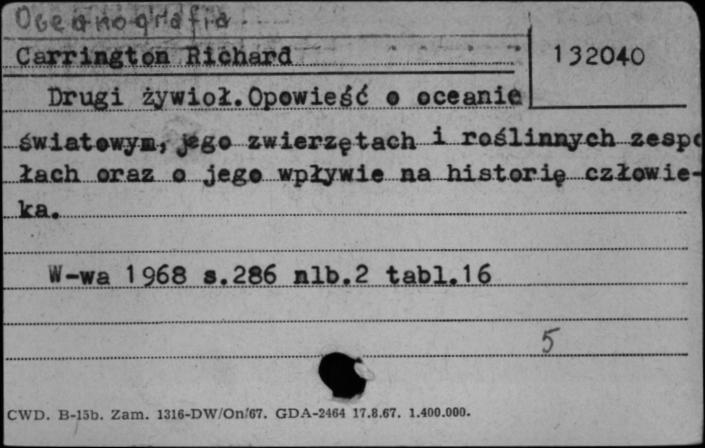 Oceanografia
Carrington Richard
132040
Drugi żywioł.Opowieść o oceanie
światowym, jego zwierzętach i roślinnych zespo
łach oraz o jego wpływie na historię człowie-
ka.
W-wa 1968 s.286 nlb.2 tabl.16
5
CWD. B-15b. Zam. 1316-DW/On/67. GDA-2464 17.8.67. 1.400.000.